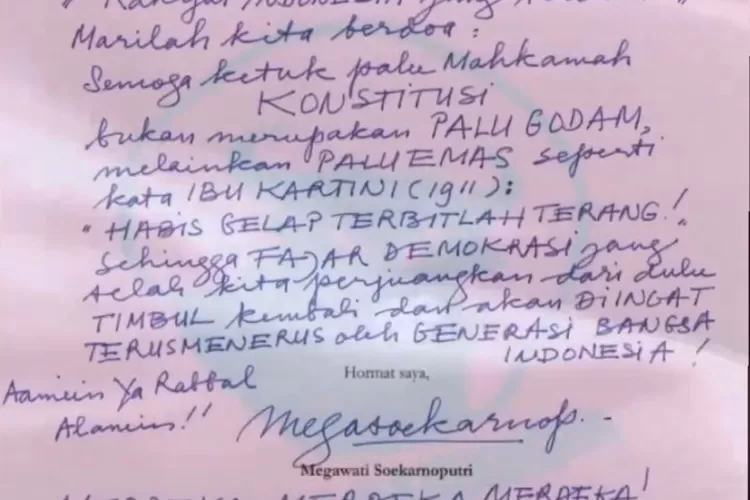 " Rakyat INDONESIA yang
Marilah kita berdoa :
Semoga ketuk palu Mahkamah
KONSTITUSI
bukan merupakan PALU GODAM,
melainkan PALU EMAS seperti
kata IBU KARTINI (1911):
" HABIS GELAP TERBITLAH TERANG !"
Sehingga FAJAR DEMOKRASI yang
telah kita perjuangkan dari dulu
TIMBUL kembali dan akan DIINGAT
TERUSMENERUS oleh GENERASI BANGSA
INDONESIA !
Hormat saya,
Aamiin Ya Rabbal
Alamiin !!
Megasoekarnop. -
Megawati Soekarnoputri
MERDEKA MERDEKA !